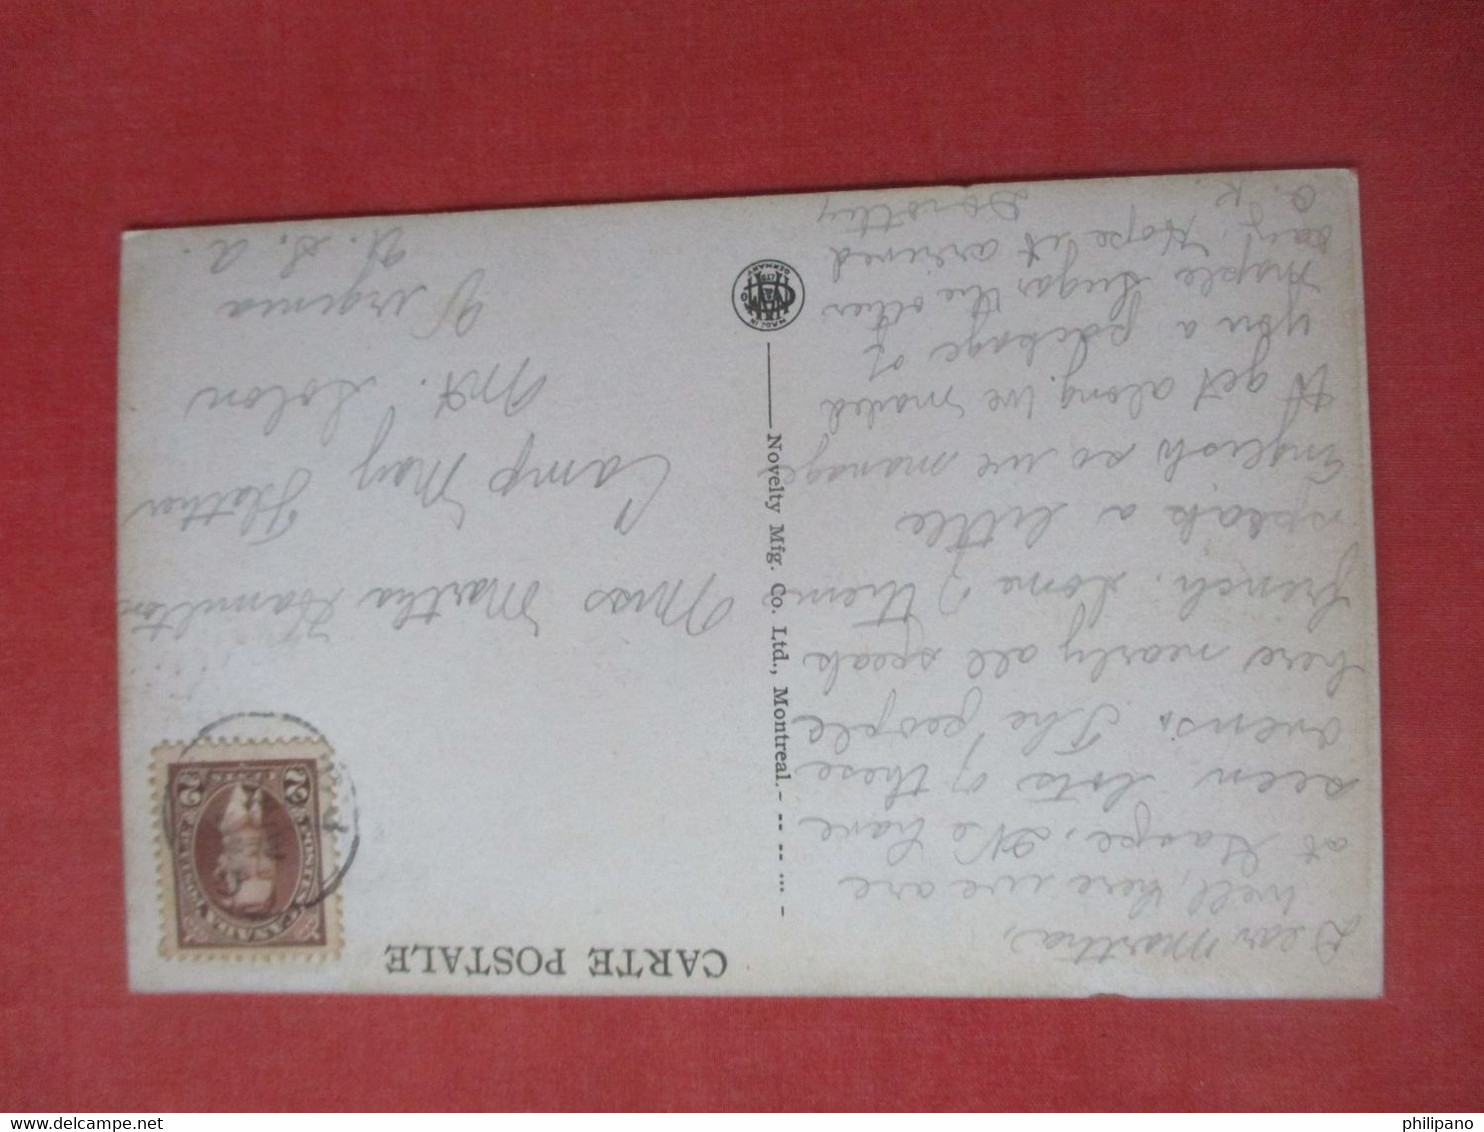 CARTE POSTALE
Dear Martha,
Well, here we are
at Gaspe. We have
seen lots of these
ovens. The people
here nearly all speak
french. Some of them
speak a little
English so we manage
to get along. We mailed
you a package of
maple sugar the other
day. Hope it arrived
O.K. Dorothy
Novelty Mfg. Co. Ltd., Montreal.
MADE IN
GERMANY
CANADA
POSTES POSTAGE
2 CENTS 2
Miss Martha Hamilton
Camp May Flather
Mt. Solon
Virginia
U. S. A.
philipano